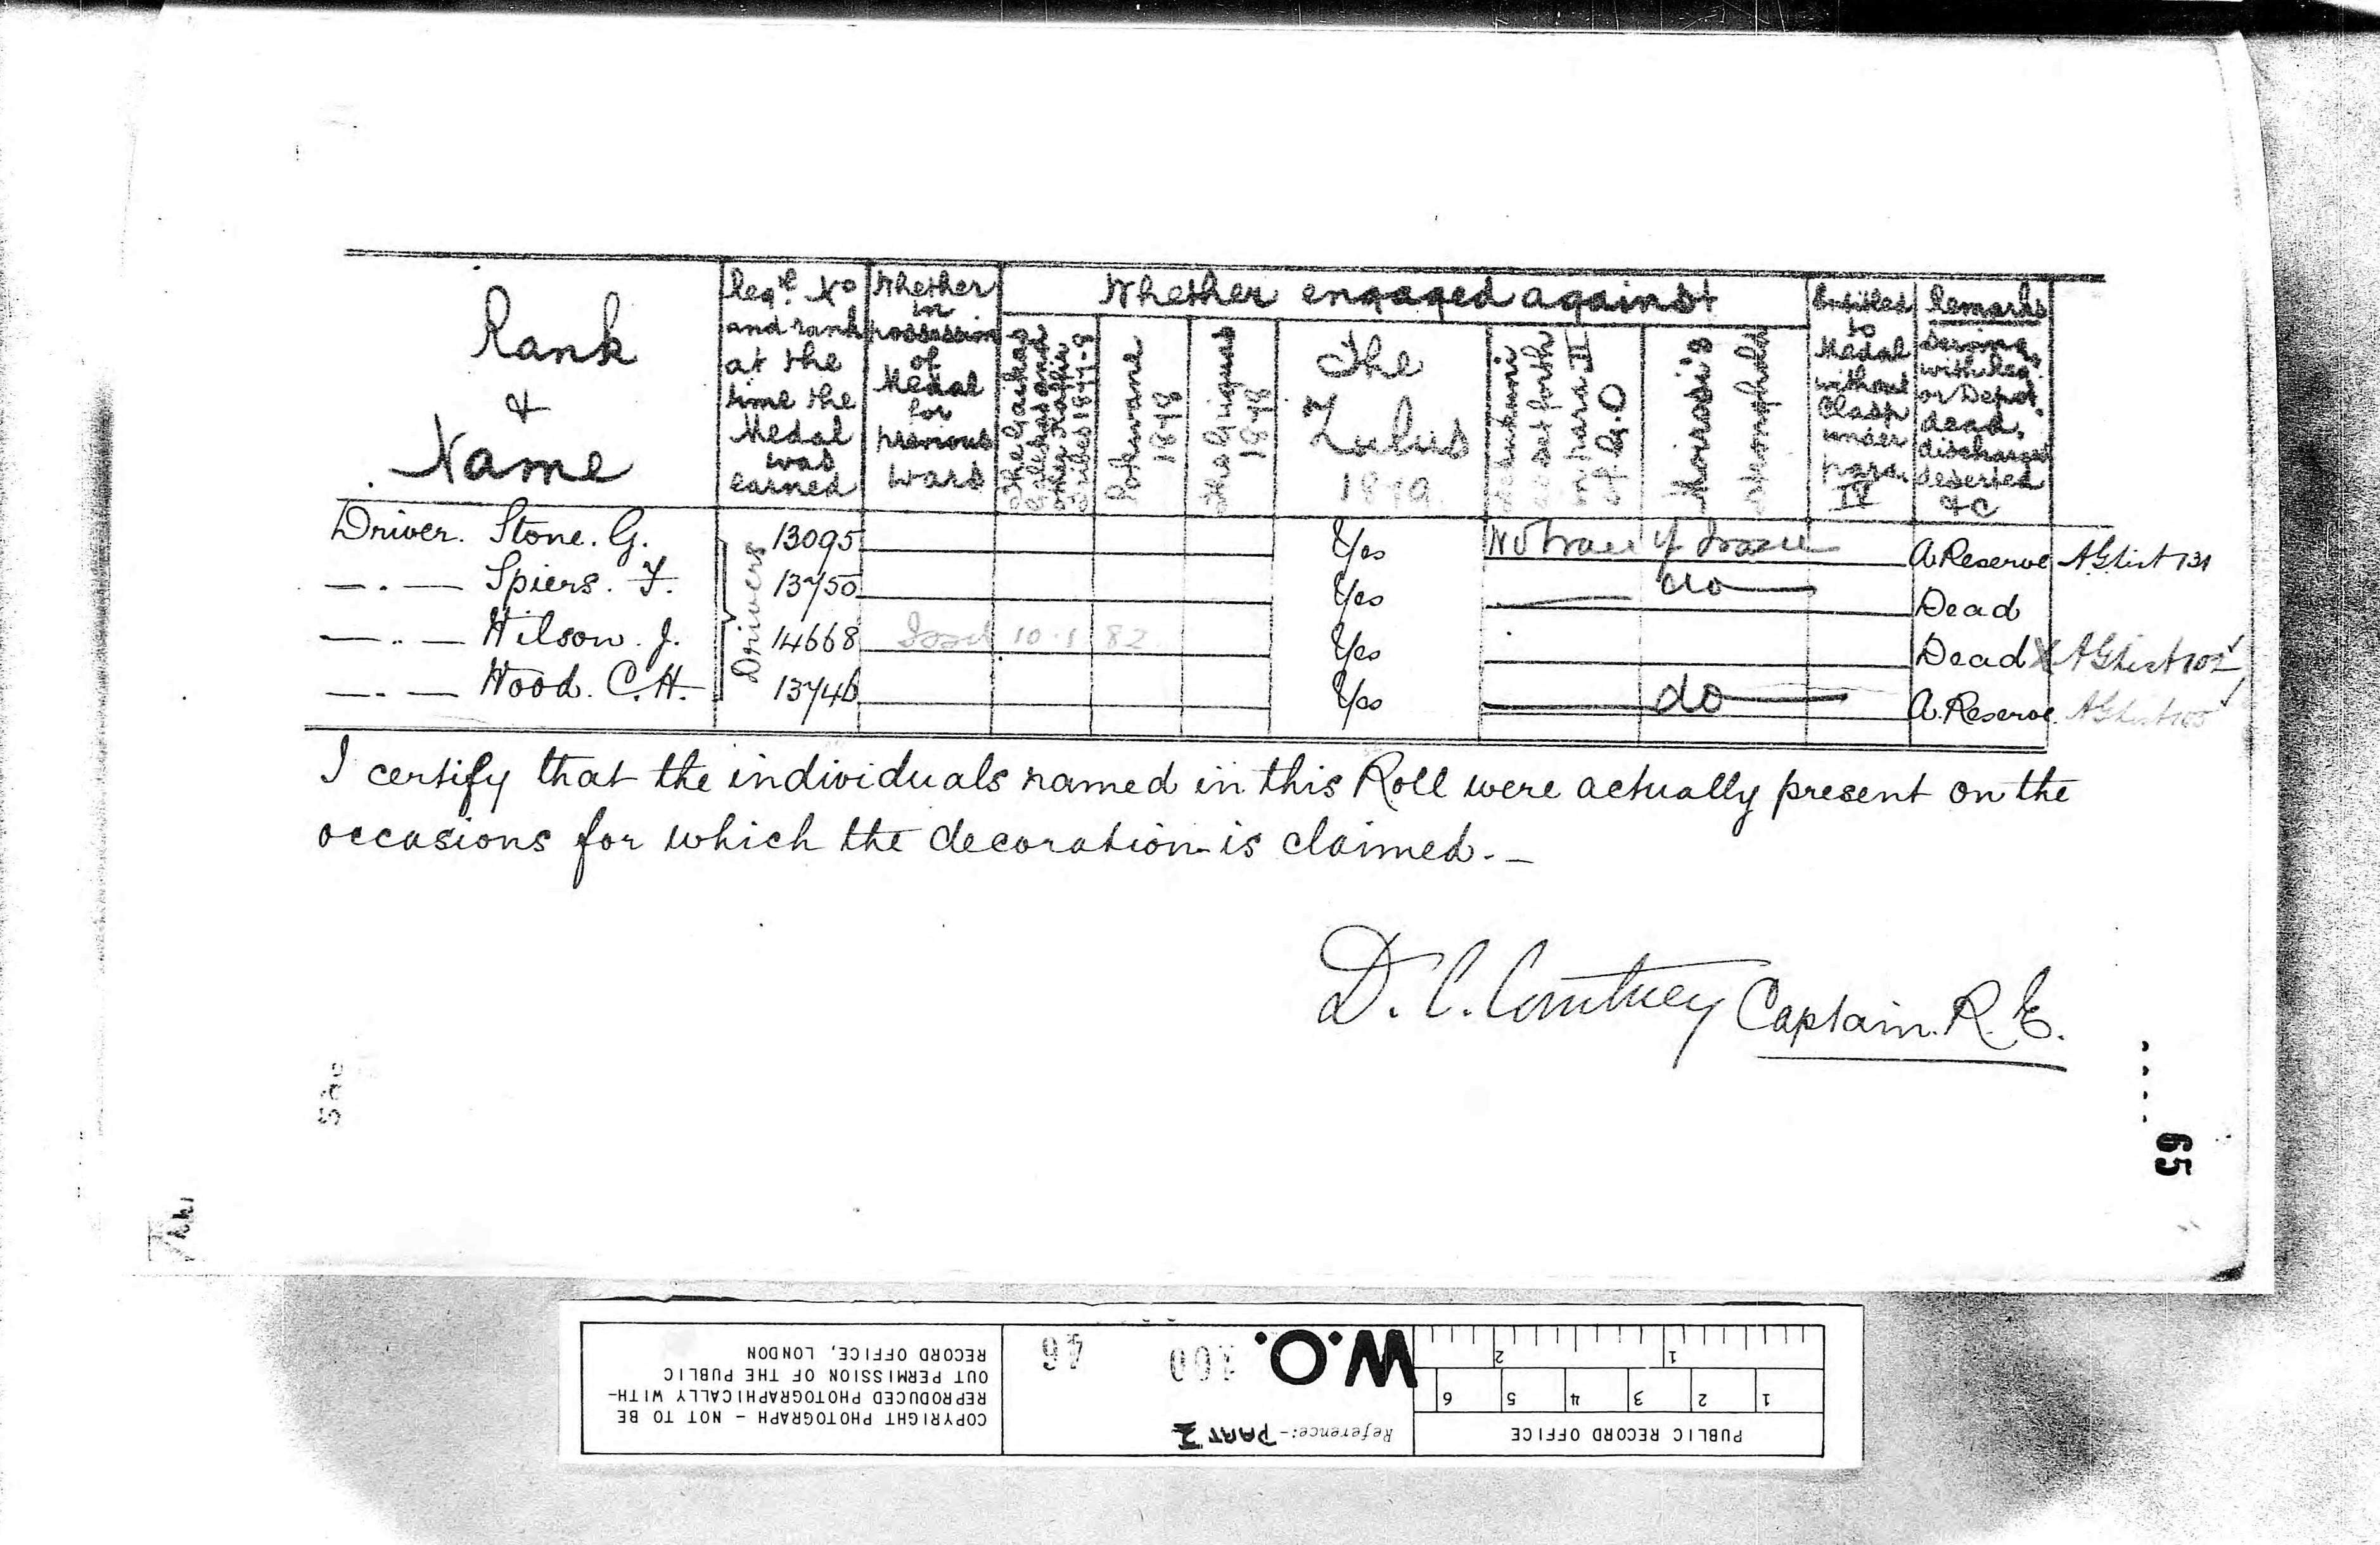 Rank
&
Name
Regl. No
and rank
at the
time the
Medal
was
earned
Whether
in
possession
of
Medal
for
previous
wars
Whether engaged against
Pokwane
1878
The Griquas
1878
The
Zulus
1879
as set forth
in para II
of G.O
Moirosi's
stronghold
Entitled
to
Medal
without
Clasp
under
para
IV
Remarks
Serving
with Regt.
or Depot,
dead,
discharged
deserted
&c
Drivers
Driver. Stone. G. 13095 Yes No trace of Issue A. Reserve AG list 131
— . — Spiers. F. 13750 Yes do Dead
— .. — Wilson. J. 14668 Issd 10.1.82 Yes Dead X AG list 102
— . — Wood. C.H. 13746 Yes do A. Reserve AG list 105
I certify that the individuals named in this Roll were actually present on the
occasions for which the decoration is claimed. —
D. C. Courtney Captain. R. E.
65
PUBLIC RECORD OFFICE
1 2 3 4 5 6
1 2
Reference:- PART I
W.O. 100 46
COPYRIGHT PHOTOGRAPH – NOT TO BE
REPRODUCED PHOTOGRAPHICALLY WITH-
OUT PERMISSION OF THE PUBLIC
RECORD OFFICE, LONDON